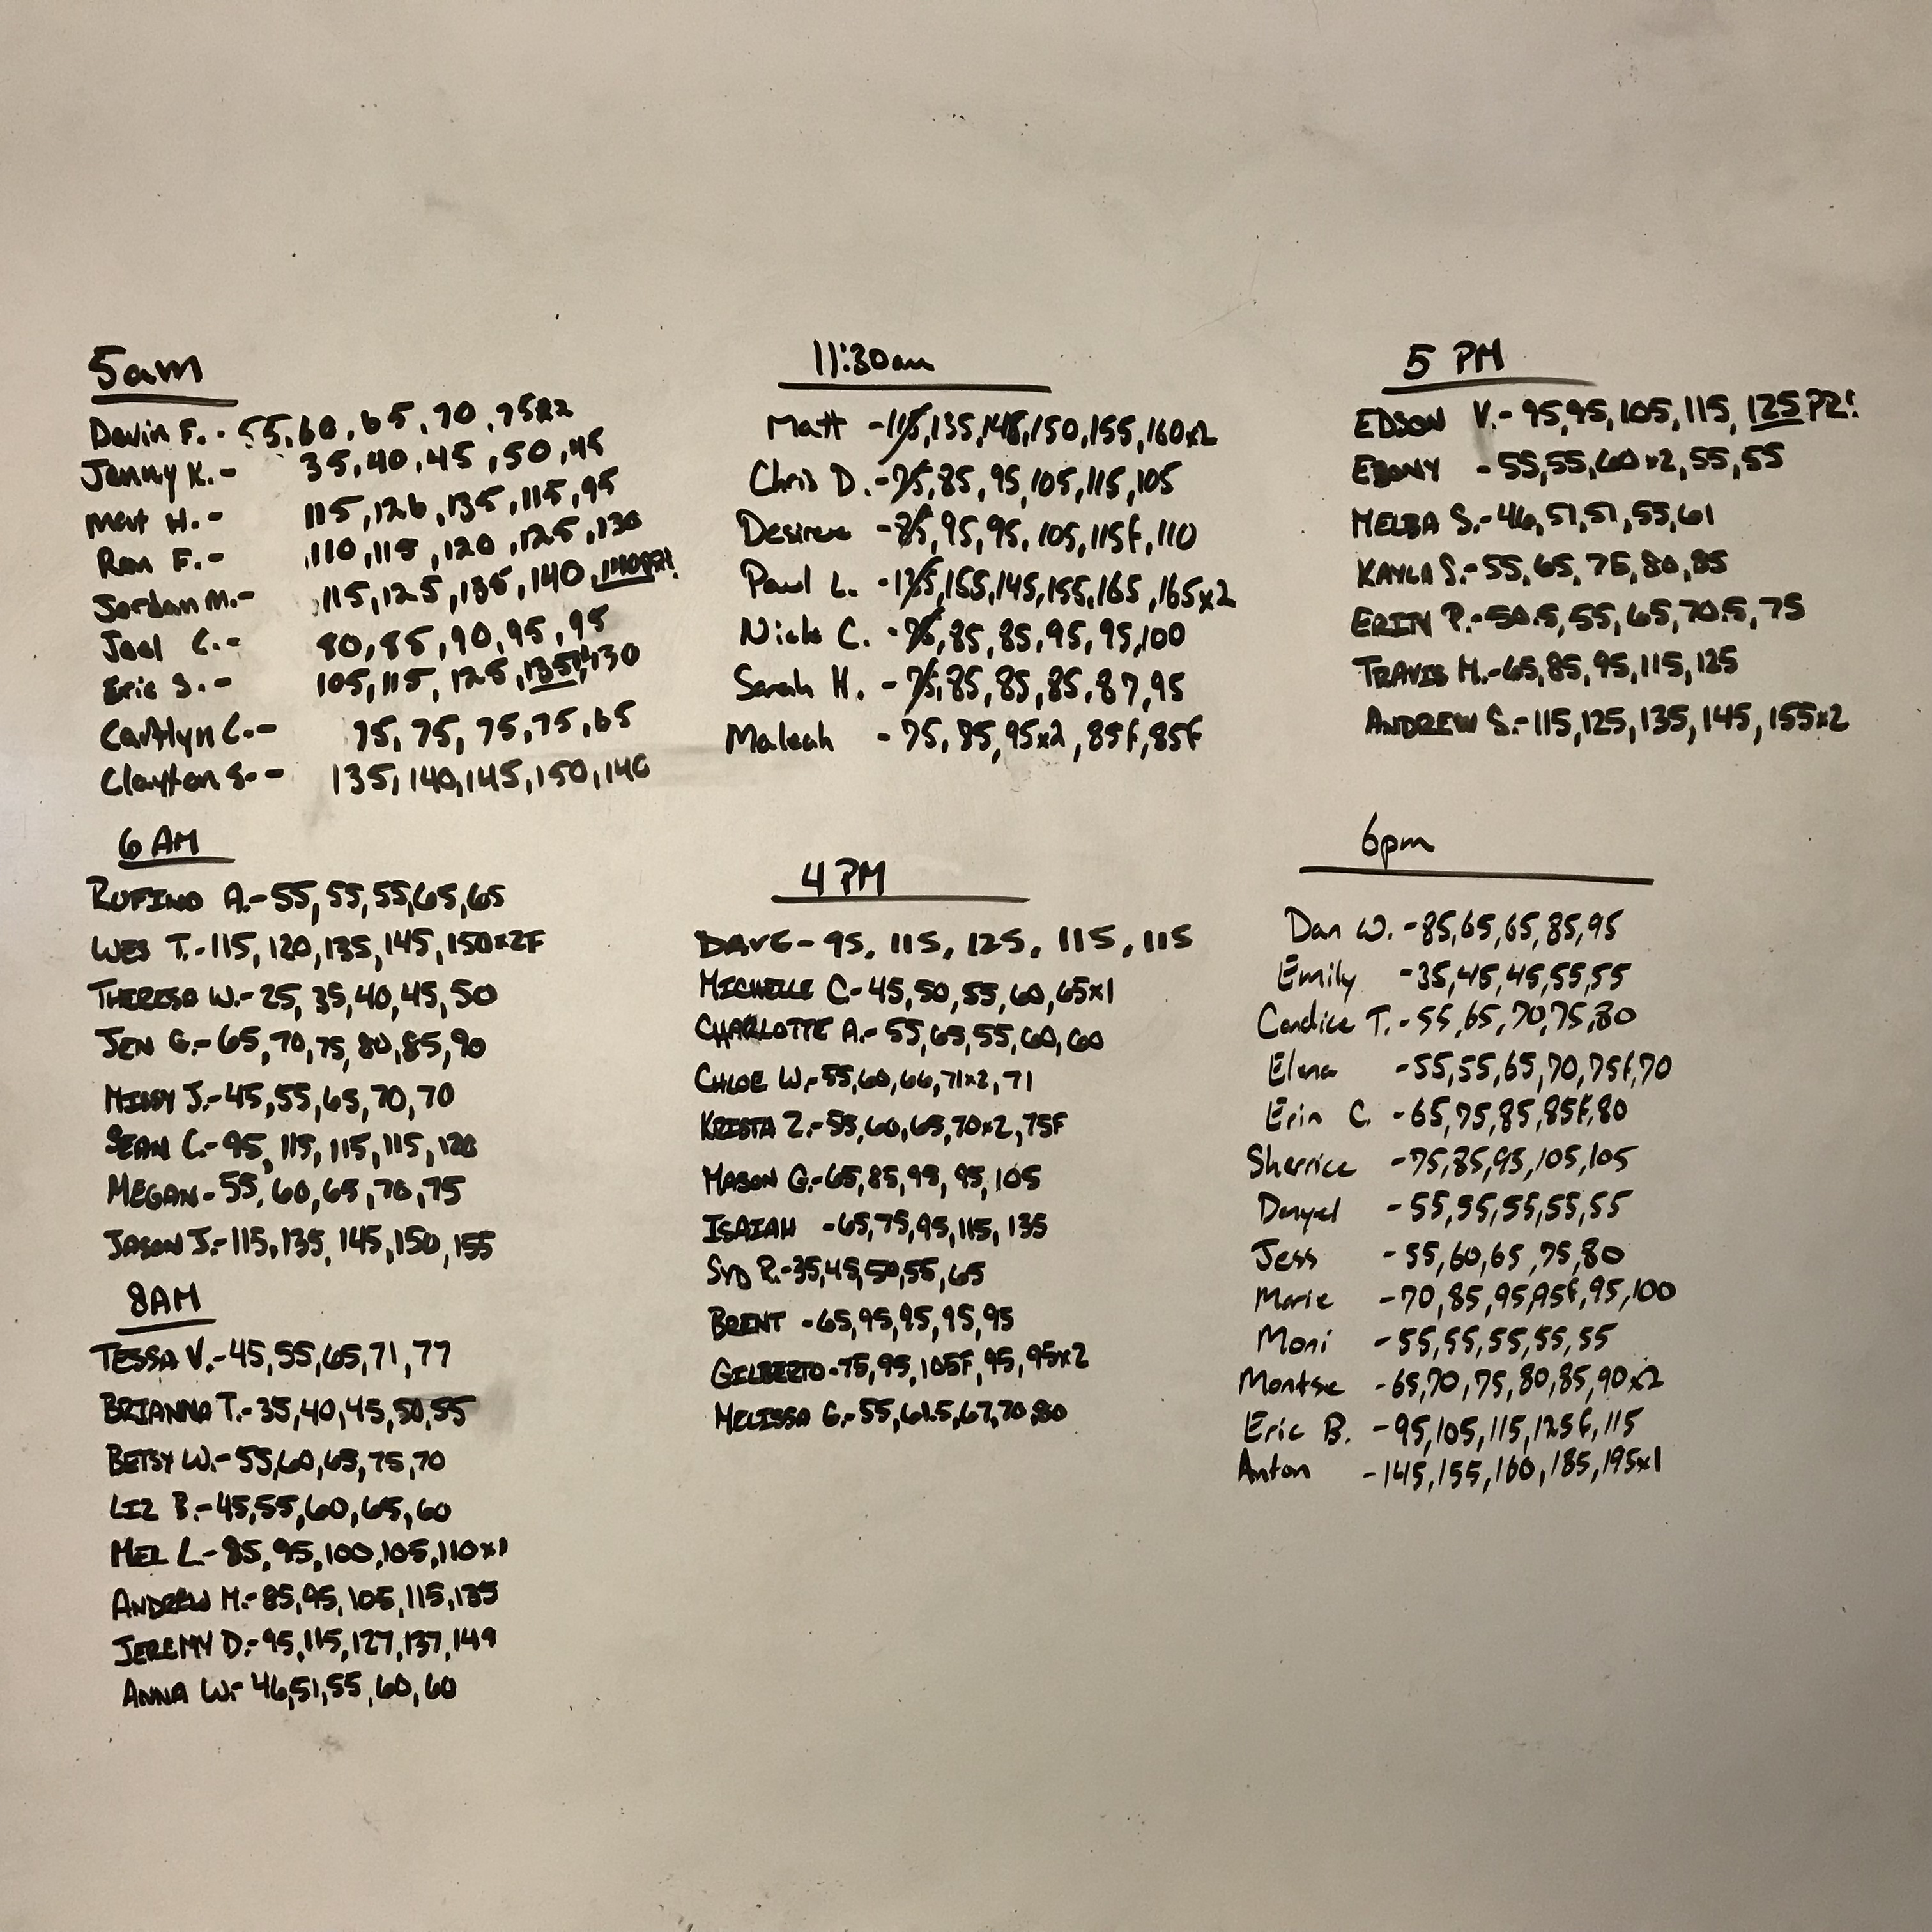 5am
Devin F. - 55, 60, 65, 70, 75x2
Jenny K. - 35, 40, 45, 50, 45
Mat H. - 115, 126, 135, 115, 95
Ron F. - 110, 115, 120, 125, 130
Jordan M. - 115, 125, 135, 140, 140PR!
Joel C. - 80, 85, 90, 95, 95
Eric S. - 105, 115, 125, 135!, 130
Caitlyn C. - 75, 75, 75, 75, 65
Clayton S. - 135, 140, 145, 150, 140
6 AM
RUFINO A. - 55, 55, 55, 65, 65
WES T. - 115, 120, 135, 145, 150x2F
THERESA W. - 25, 35, 40, 45, 50
JEN G. - 65, 70, 75, 80, 85, 90
MISSY J. - 45, 55, 65, 70, 70
SEAN C. - 95, 115, 115, 115, 120
MEGAN - 55, 60, 65, 70, 75
JASON J. - 115, 135, 145, 150, 155
8AM
TESSA V. - 45, 55, 65, 71, 77
BRIANNA T. - 35, 40, 45, 50, 55
BETSY W. - 55, 60, 65, 75, 70
LIZ B. - 45, 55, 60, 65, 60
MEL L. - 85, 95, 100, 105, 110x1
ANDREW M. - 85, 95, 105, 115, 135
JEREMY D. - 95, 115, 127, 137, 149
ANNA W. - 46, 51, 55, 60, 60
11:30am
Matt - 115, 135, 145, 150, 155, 160x2
Chris D. - 75, 85, 95, 105, 115, 105
Desiree - 85, 95, 95, 105, 115f, 110
Paul L. - 135, 155, 145, 155, 165, 165x2
Nick C. - 75, 85, 85, 95, 95, 100
Sarah H. - 75, 85, 85, 85, 87, 95
Maleah - 75, 85, 95x2, 85f, 85f
4 PM
DAVE - 95, 115, 125, 115, 115
MICHELLE C. - 45, 50, 55, 60, 65x1
CHARLOTTE A. - 55, 65, 55, 60, 60
CHLOE W. - 55, 60, 66, 71x2, 71
KRISTA Z. - 55, 60, 65, 70x2, 75F
MASON G. - 65, 85, 95, 95, 105
ISAIAH - 65, 75, 95, 115, 135
SYD R. - 35, 45, 50, 55, 65
BRENT - 65, 95, 95, 95, 95
GILBERTO - 75, 95, 105F, 95, 95x2
MELISSA G. - 55, 61.5, 67, 70, 80
5 PM
EDSON V. - 95, 95, 105, 115, 125 PR!
EBONY - 55, 55, 60x2, 55, 55
MELBA S. - 46, 51, 51, 55, 61
KAYLA S. - 55, 65, 75, 80, 85
ERIN P. - 50.5, 55, 65, 70.5, 75
TRAVIS M. - 65, 85, 95, 115, 125
ANDREW S. - 115, 125, 135, 145, 155x2
6pm
Dan W. - 85, 65, 65, 85, 95
Emily - 35, 45, 45, 55, 55
Candice T. - 55, 65, 70, 75, 80
Elena - 55, 55, 65, 70, 75f, 70
Erin C. - 65, 75, 85, 85f, 80
Sherrice - 75, 85, 95, 105, 105
Danyel - 55, 55, 55, 55, 55
Jess - 55, 60, 65, 75, 80
Marie - 70, 85, 95, 95f, 95, 100
Moni - 55, 55, 55, 55, 55
Montse - 65, 70, 75, 80, 85, 90x2
Eric B. - 95, 105, 115, 125f, 115
Anton - 145, 155, 160, 185, 195x1